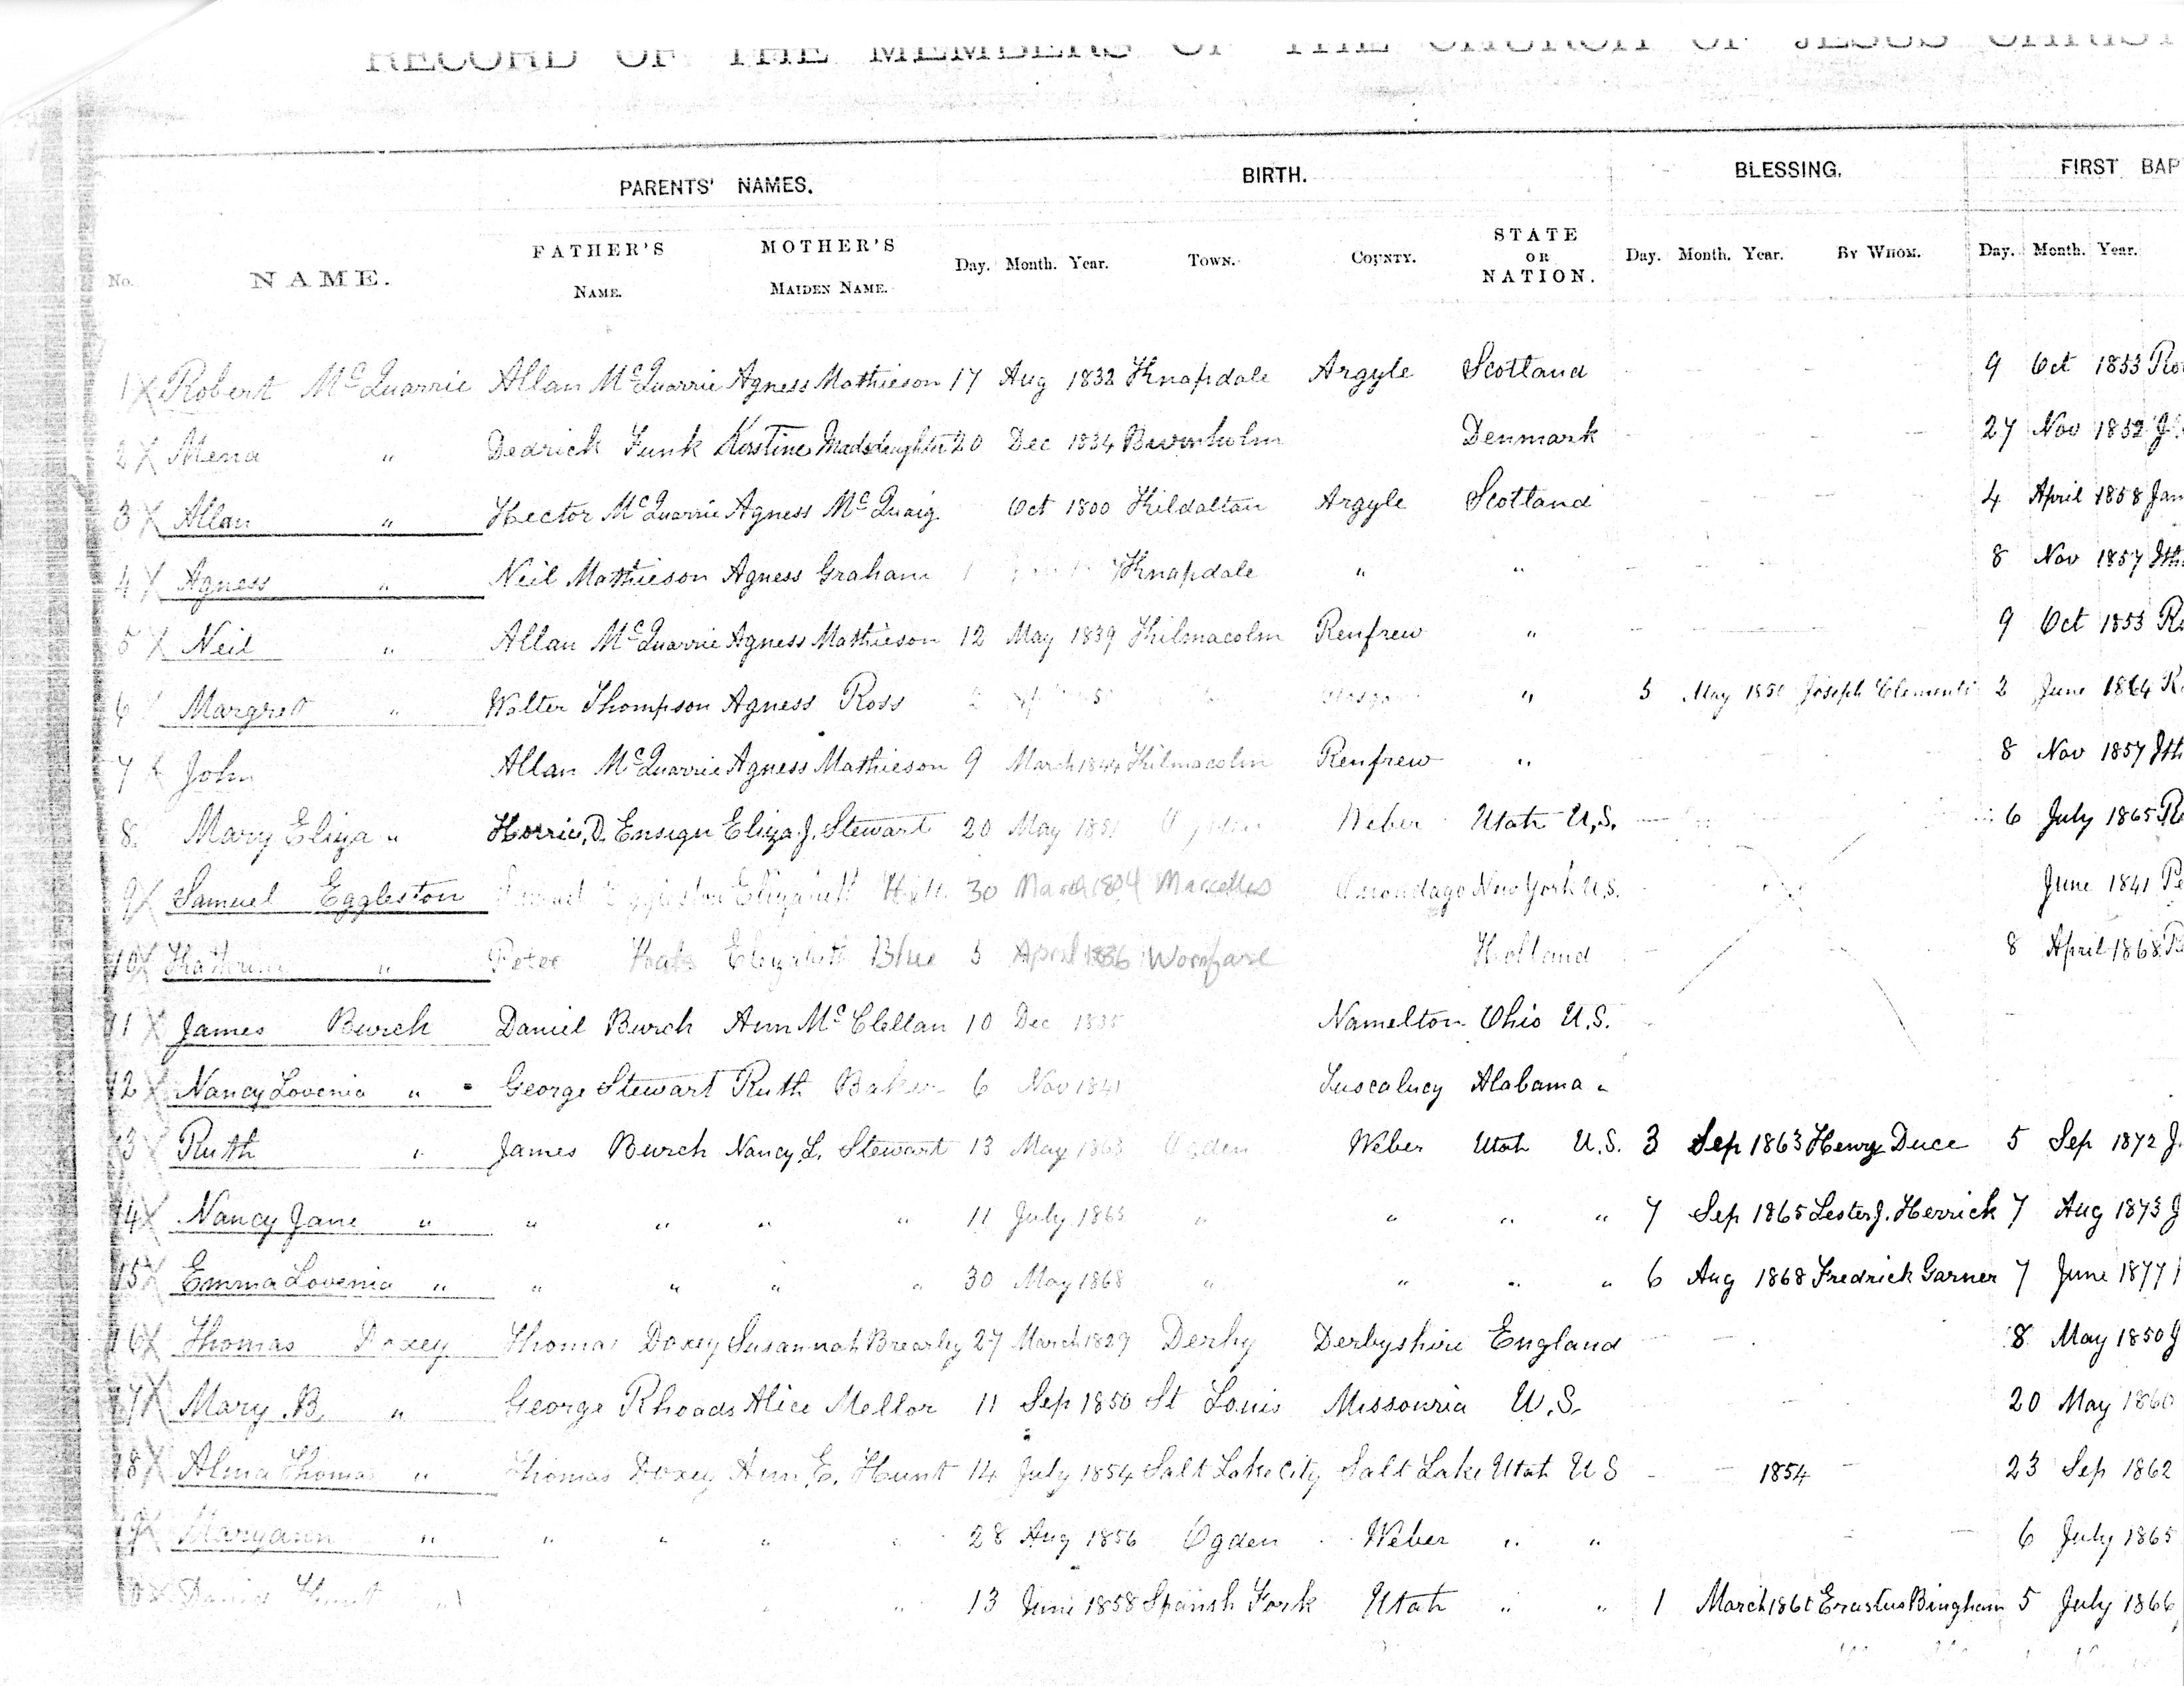 RECORD OF THE MEMBERS OF THE CHURCH OF JESUS CHRIST
PARENTS' NAMES. BIRTH. BLESSING. FIRST BAP
No. NAME. FATHER'S NAME. MOTHER'S MAIDEN NAME. Day. Month. Year. Town. County. STATE OR NATION. Day. Month. Year. By Whom. Day. Month. Year.
1 X Robert McQuarrie Allan McQuarrie Agness Mathieson 17 Aug 1832 Knapdale Argyle Scotland 9 Oct 1853 Ro
2 X Mena " Dedrick Funk Kirstine Madsdaughter 20 Dec 1834 Denmark 27 Nov 1852 J.
3 X Allan " Hector McQuarrie Agness McQuaig Oct 1800 Kildaltan Argyle Scotland 4 April 1858 Jan
4 X Agness " Neil Mathieson Agness Graham Knapdale " " 8 Nov 1857
5 X Neil " Allan McQuarrie Agness Mathieson 12 May 1839 Kilmacolm Renfrew " 9 Oct 1853
6 Margret " Walter Thompson Agness Ross " 5 May Joseph Clements 2 June 1864
7 X John Allan McQuarrie Agness Mathieson 9 March 1844 Kilmacolm Renfrew " 8 Nov 1857
8. Mary Eliza " Horrice, D. Ensign Eliza J. Stewart 20 May Ogden Weber Utah U.S. 6 July 1865
9 X Samuel Eggleston Samuel Eggleston Elizabeth 30 March 1804 Marcellus Onondago New York U.S. June 1841
10 X " Peter Elizabeth Blue 5 April Holland 8 April 1868
11 X James Burch Daniel Burch Ann McClellan 10 Dec 1835 Namelton Ohio U.S.
12 X Nancy Lovenia " George Stewart Ruth Baker 6 Nov 1841 Tuscalucy Alabama "
13 X Ruth " James Burch Nancy L. Stewart 13 May 1863 Ogden Weber Utah U.S. 3 Sep 1863 Henry Duce 5 Sep 1872 J.
14 X Nancy Jane " " " " " 11 July 1865 " " " " 7 Sep 1865 Lester J. Herrick 7 Aug 1873 J
15 X Emma Lovenia " " " " " 30 May 1868 " " " " 6 Aug 1868 Fredrick Garner 7 June 1877
16 X Thomas Doxey Thomas Doxey Susannah Brearley 27 March 1829 Derby Derbyshire England 8 May 1850 J
17 X Mary B. " George Rhoads Alice Mellor 11 Sep 1850 St Louis Missouria U.S. 20 May 1860
18 X Alma Thomas " Thomas Doxey Ann E. Hunt 14 July 1854 Salt Lake City Salt Lake Utah U S 1854 23 Sep 1862
19 X Maryann " " " " " 28 Aug 1856 Ogden Weber " " 6 July 1865
Hunt " 13 June 1858 Spanish Fork Utah " " 1 March Erastus Bingham 5 July 1866